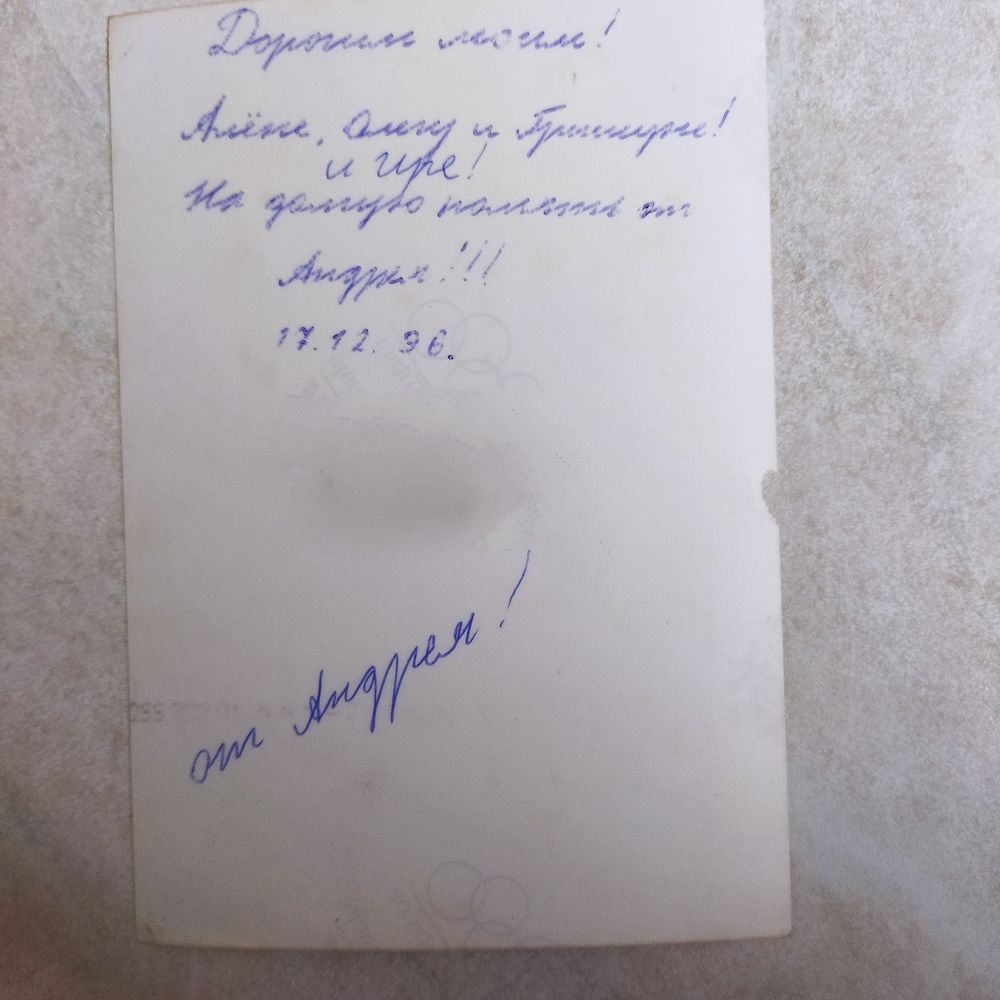 Дорогим моим!
Алёне, Олегу и Гришуне!
и Ире!
На долгую память от
Андрея!!!
17.12.96.
от Андрея!